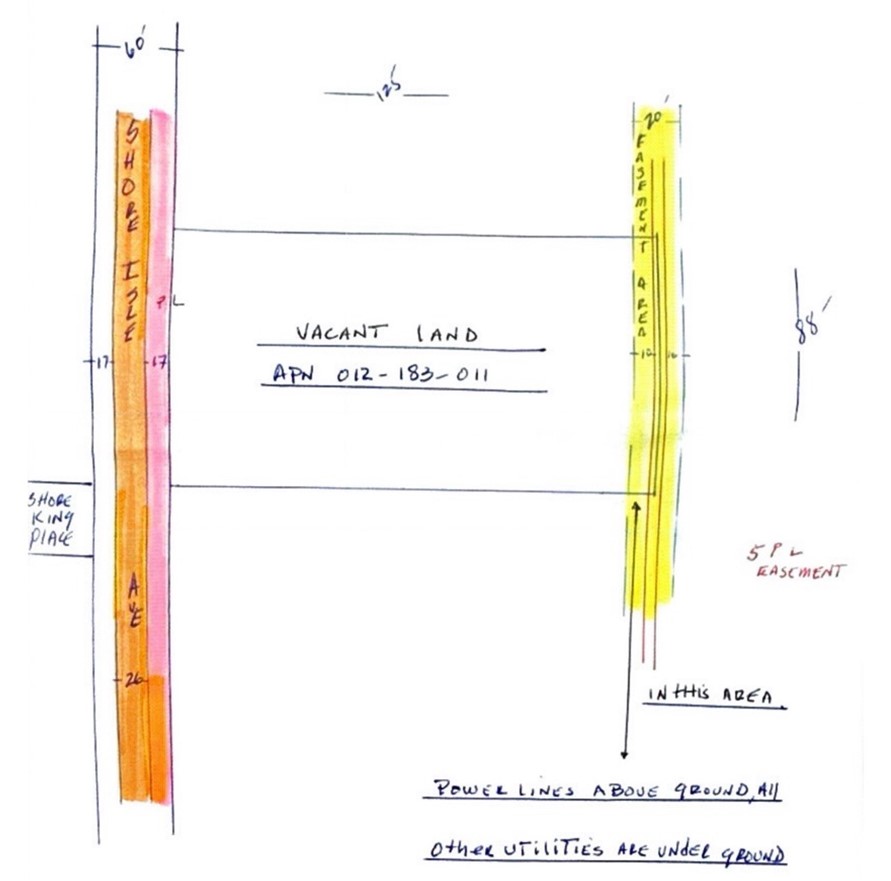 60'
125'
20'
SHORE ISLE AVE
EASEMENT AREA
PL
VACANT LAND
APN 012-183-011
17 17
10 10
88'
SHORE
KING
PLACE
5 PL
EASEMENT
26
IN THIS AREA.
POWER LINES ABOVE GROUND, All
Other UTILITIES ARE UNDER GROUND